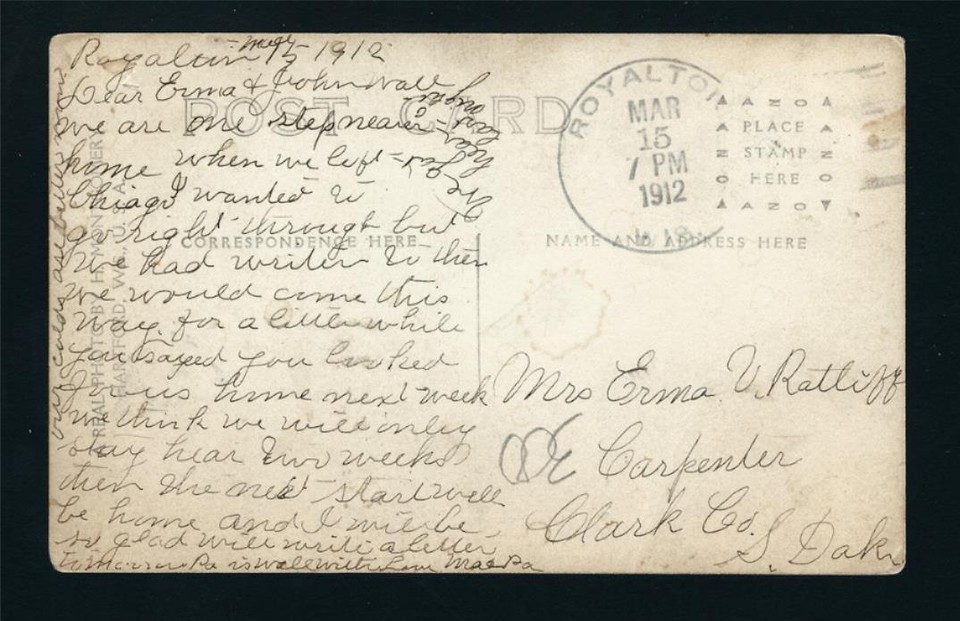 Royalton 15 1912
Dear Erma & John
we are one step nearer
home when we left
Chiago I wanted to
go right through but
we had writen to them
we would come this
way for a little while
you sayed you looked
for us home next week
we think we will only
stay hear two weeks
then the next start will
be home and I will be
so glad will write a letter
tomorrow Pa is well with love Ma & Pa
our colds are better
POST CARD
CORRESPONDENCE HERE
REAL PHOTO BY H. MONTGOMERY
HARTFORD, WIS. U.S.A.
ROYALTON
MAR
15
7 PM
1912
WIS.
AZO
PLACE
STAMP
HERE
AZO
NAME AND ADDRESS HERE
Mrs Erma V. Ratliff
Carpenter
Clark Co.
S. Dak.